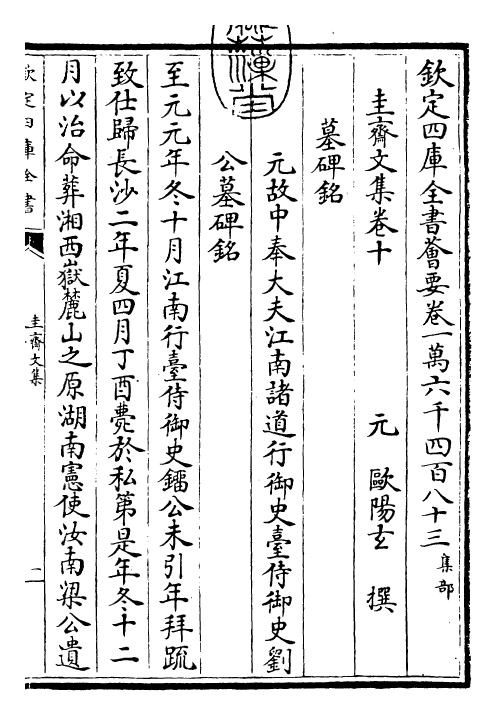 欽定四庫全書薈要卷一萬六千四百八十三 集部
圭齋文集卷十 元 歐陽玄 撰
墓碑銘
元故中奉大夫江南諸道行御史臺侍御史劉
公墓碑銘
至元元年冬十月江南行臺侍御史鐂公未引年拜䟽
致仕歸長沙二年夏四月丁酉薨於私第是年冬十二
月以治命葬湘西嶽麓山之原湖南憲使汝南梁公遺
欽定四庫全書
圭齋文集
一